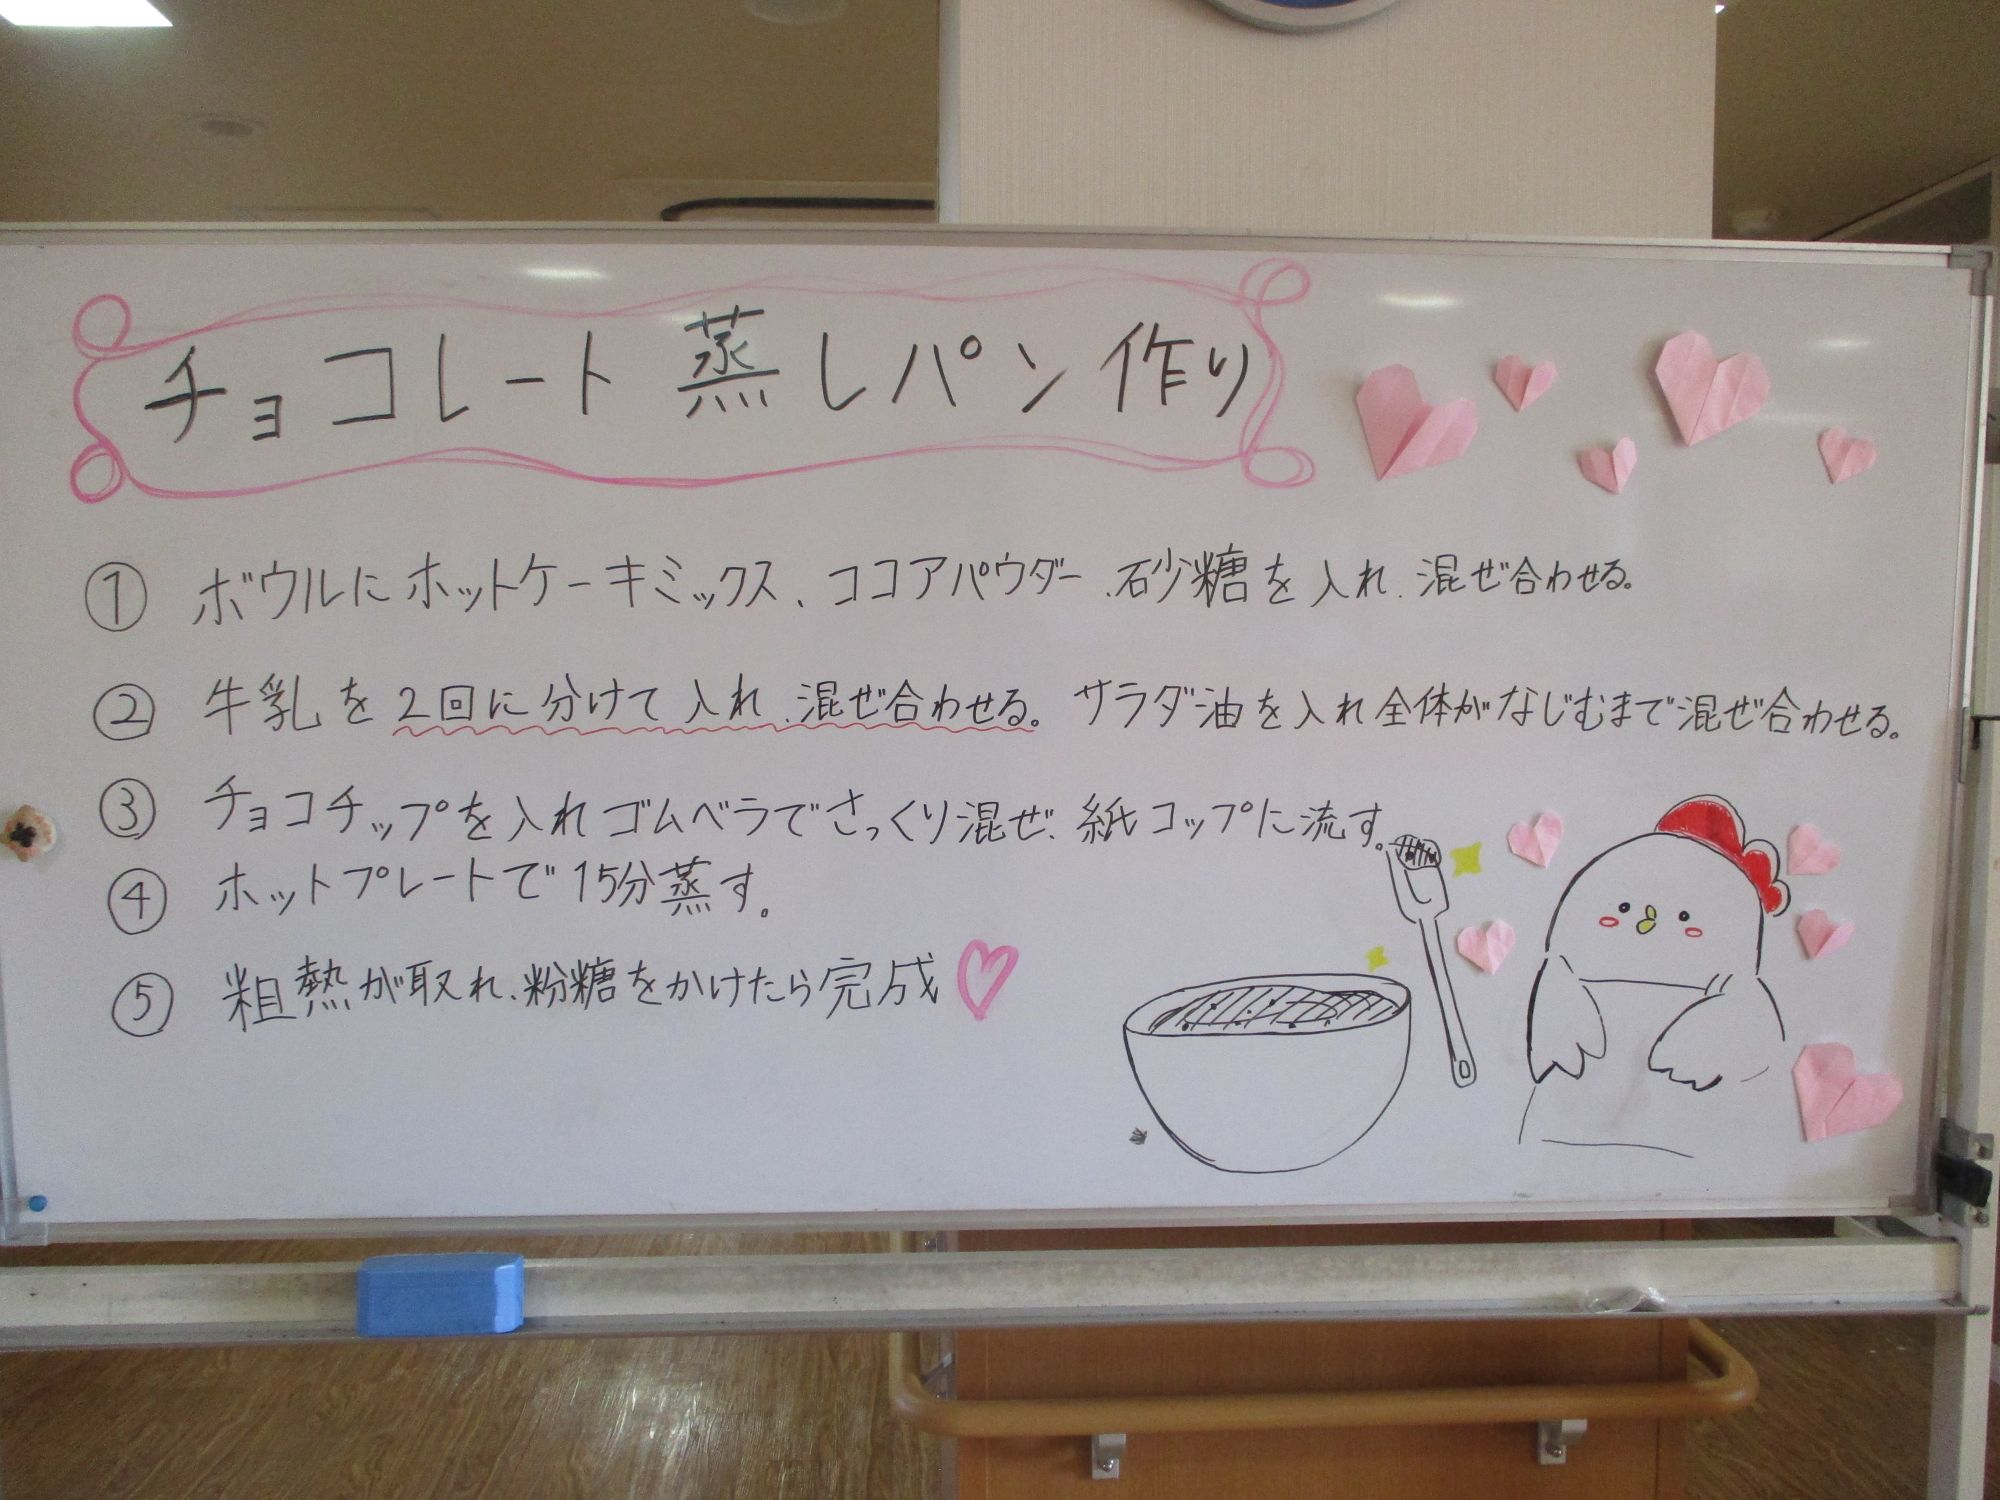 チョコレート蒸しパン作り
① ボウルにホットケーキミックス、ココアパウダー、砂糖を入れ、混ぜ合わせる。
② 牛乳を2回に分けて入れ、混ぜ合わせる。サラダ油を入れ全体がなじむまで混ぜ合わせる。
③ チョコチップを入れゴムベラでさっくり混ぜ、紙コップに流す。
④ ホットプレートで15分蒸す。
⑤ 粗熱が取れ、粉糖をかけたら完成♡